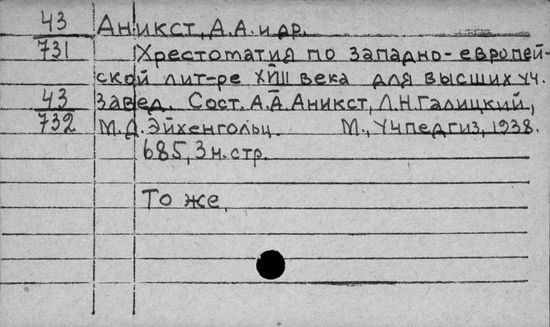 43 Аникст, А.А. и др.
731 Хрестоматия по западно-европей-
ской лит-ре XVIII века для высших уч.
43 завед. Сост. А.А. Аникст, Л.Н. Галицкий,
732 М.Д. Эйхенгольц. М., Учпедгиз, 1938.
685, 3 н. стр.
То же.